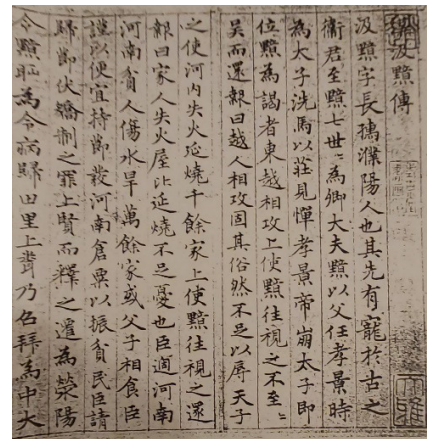 汲黯傳
汲黯字長孺濮陽人也其先有寵於古之
衛君至黯七世〻為卿大夫黯以父任孝景時
為太子洗馬以莊見憚孝景帝崩太子即
位黯為謁者東越相攻上使黯往視之不至〻
吳而還報曰越人相攻固其俗然不足以辱天子
之使河內失火延燒千餘家上使黯往視之還
報曰家人失火屋比延燒不足憂也臣適河南
河南貧人傷水旱萬餘家或父子相食臣
謹以便宜持節發河南倉粟以振貧民臣請
歸節伏矯制之罪上賢而釋之遷為滎陽
令黯恥為令病歸田里上聞乃召拜為中大